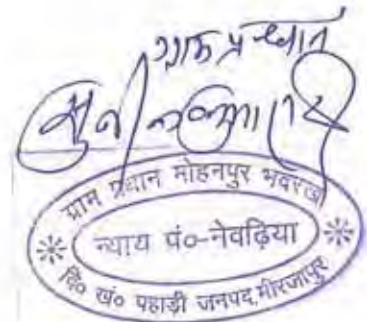 ग्राम प्रधान
ग्राम प्रधान मोहनपुर भवरख
न्याय पं०-नेवढ़िया
वि० खं० पहाड़ी जनपद, मीरजापुर